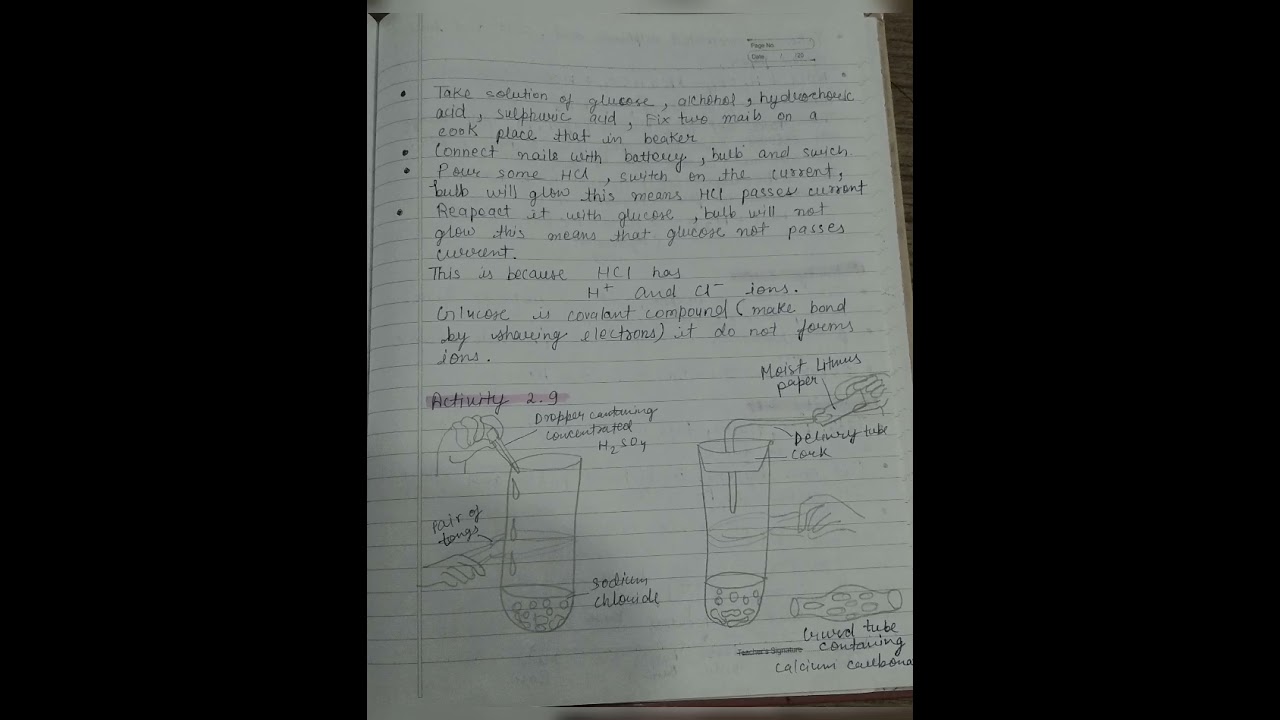 Page No.
Date / /20
• Take solution of glucose, alchohol, hydrochoric
acid, sulphuric acid, Fix two mails on a
cook place that in beaker
• Connect nails with battery, bulb and swich
• Pour some HCl, switch on the current,
bulb will glow this means HCl passes current
• Reapeact it with glucose, bulb will not
glow this means that glucose not passes
current.
This is because HCl has
H+ and Cl- ions.
Glucose is covalant compound (make bond
by sharing electrons) it do not forms
ions.
Moist Litmus
paper
Activity 2.9
Dropper containing
concentrated
H2SO4
Delivry tube
cork
Pair of
tongs
sodium
chloride
Guard tube
containing
calcium carbona
Teacher's Signature